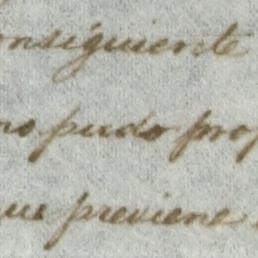 onsiguiente
no pudo prop
que previene